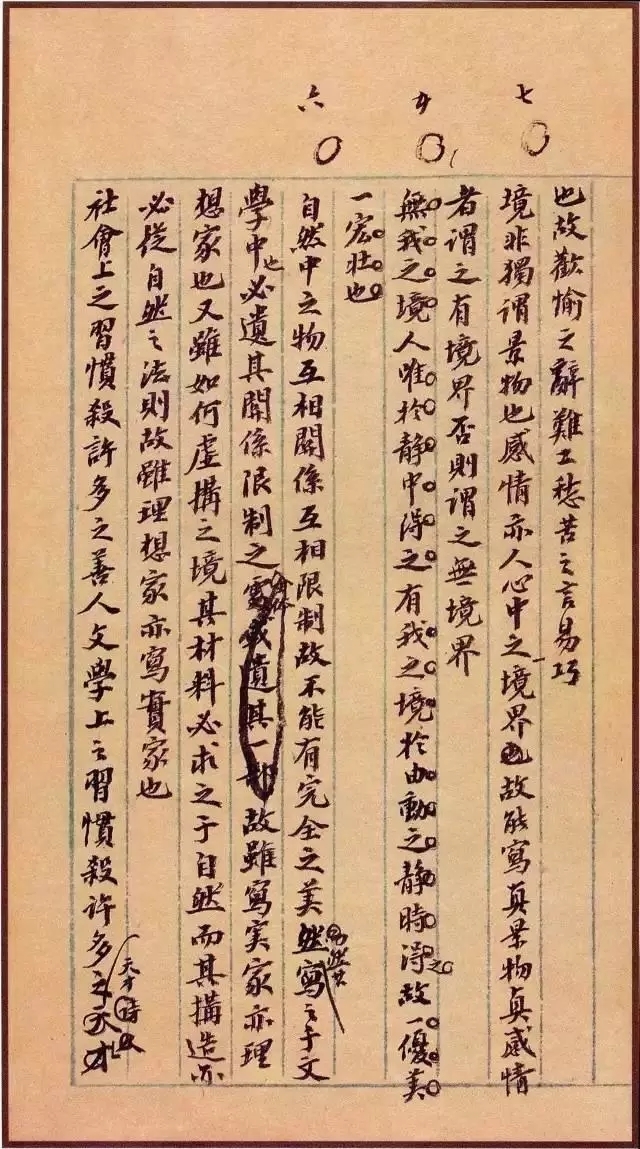 七
五
六
也故歡愉之辭難工愁苦之言易巧
境非獨謂景物也感情亦人心中之境界故能寫真景物真感情
者謂之有境界否則謂之無境界
無我之境人唯於静中得之有我之境於由動之静時得之故一優美
一宏壯也
自然中之物互相關係互相限制故不能有完全之美然其寫之于文
學中也必遺其關係限制之處故雖寫实家亦理
想家也又雖如何虛構之境其材料必求之于自然而其構造亦
必從自然之法則故雖理想家亦寫實家也
社會上之習慣殺許多之善人文學上之習慣殺許多之天才